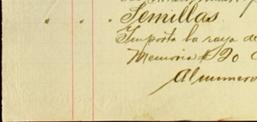 " " Semillas
Importa la raya de
Memoria $20
Al numero